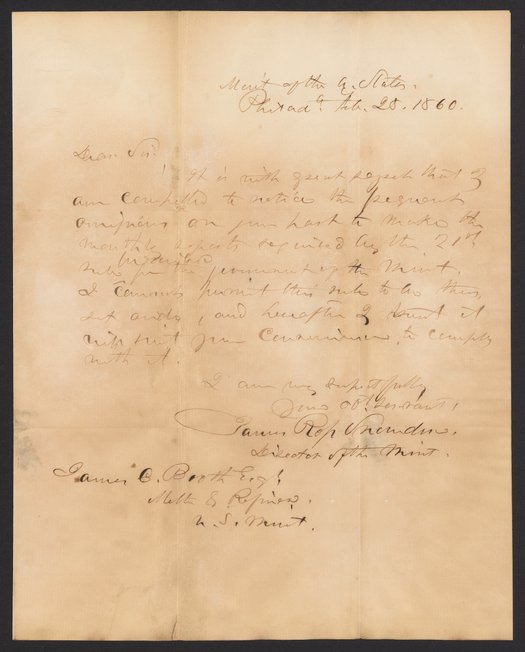 Mint of the U. States.
Philada. Feb. 28. 1860.
Dear Sir:
It is with great regret that I
am compelled to notice the frequent
omissions on your part to make the
monthly reports required by the 21st
rule prescribed for the government of the Mint.
I cannot permit this rule to be thus
set aside, and hereafter I trust it
will suit your convenience, to comply
with it.
I am very respectfully,
Your obt. servant,
James Ross Snowden.
Director of the Mint.
James C. Booth Esq.
Melter & Refiner.
U. S. Mint.